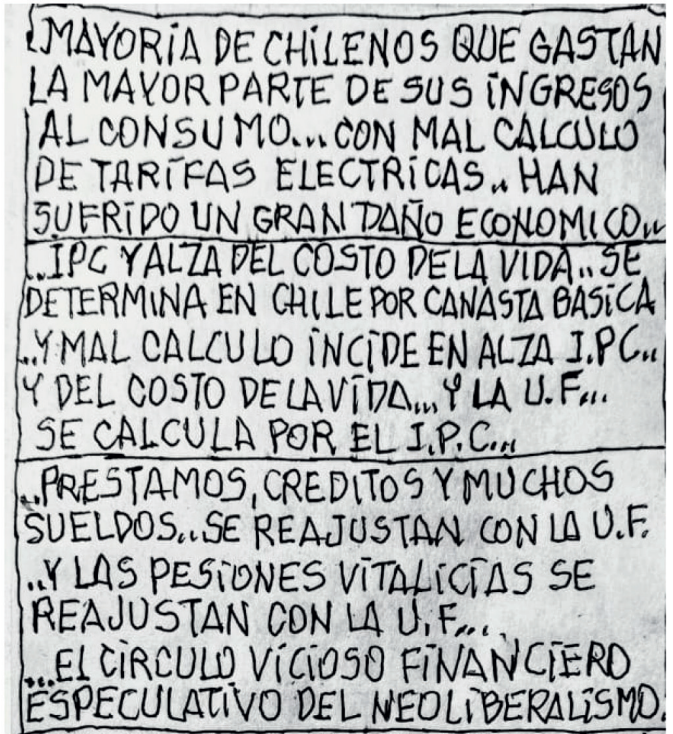 MAYORÍA DE CHILENOS QUE GASTAN
LA MAYOR PARTE DE SUS INGRESOS
AL CONSUMO... CON MAL CALCULO
DE TARIFAS ELECTRICAS.. HAN
SUFRIDO UN GRAN DAÑO ECONOMICO..
..IPC Y ALZA DEL COSTO DE LA VIDA.. SE
DETERMINA EN CHILE POR CANASTA BASICA
..Y MAL CALCULO INCIDE EN ALZA I.PC..
Y DEL COSTO DE LA VIDA... Y LA U.F...
SE CALCULA POR EL I.P.C...
..PRESTAMOS, CREDITOS Y MUCHOS
SUELDOS.. SE REAJUSTAN CON LA U.F.
..Y LAS PESIONES VITALICIAS SE
REAJUSTAN CON LA U.F...
...El CIRCULO VICIOSO FINANCIERO
ESPECULATIVO DEL NEOLIBERALISMO.